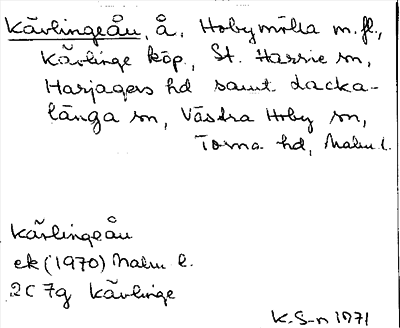 Kävlingeån, å, Hobymölla m.fl.,
Kävlinge köp., St. Harrie sn,
Harjagers hd samt Lacka-
länga sn, Västra Hoby sn,
Torna hd, Malm l.
Kävlingeån
ek (1970) Malm l.
2C 7g Kävlinge
K.S-n 1971